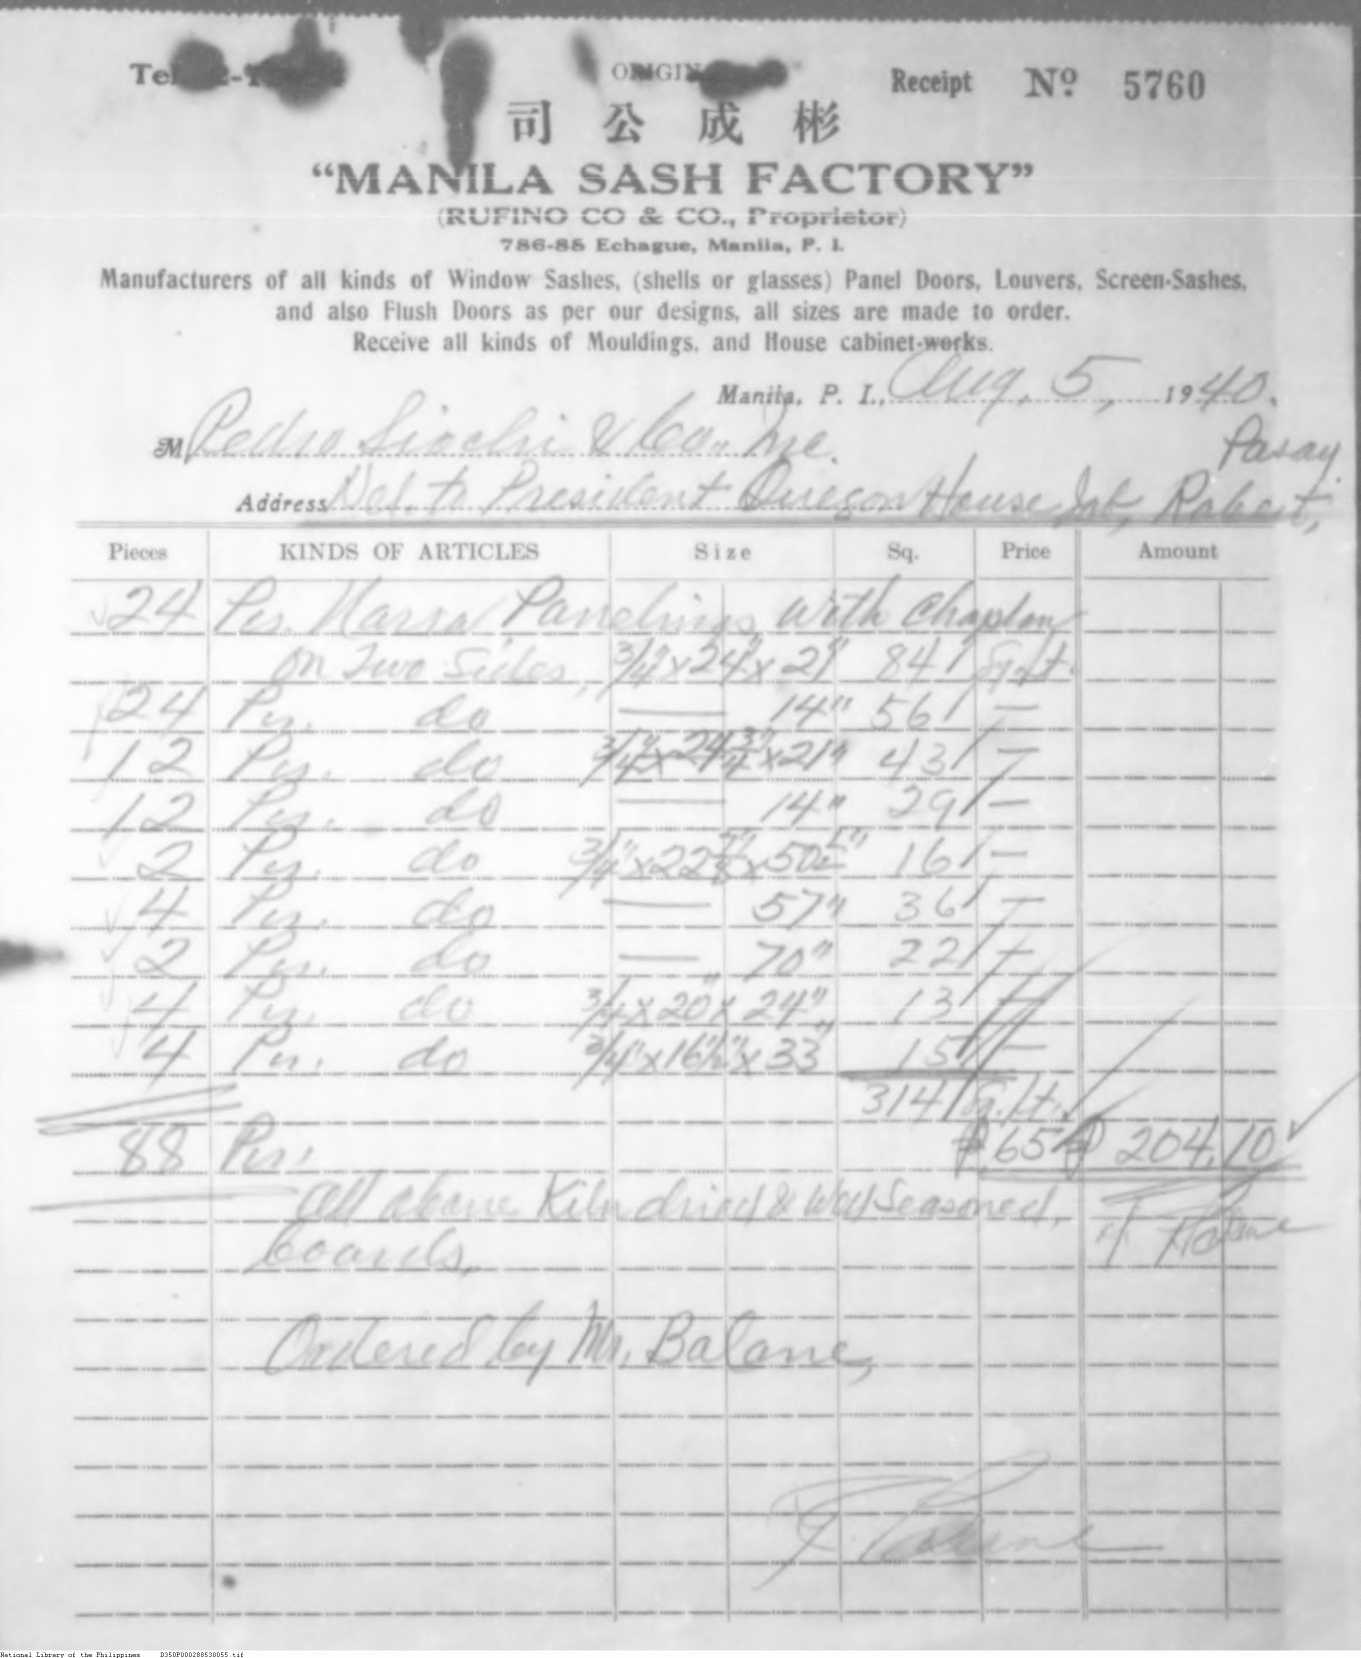 ORIGIN
Receipt Nº 5760
司 公 成 彬
“MANILA SASH FACTORY”
(RUFINO CO & CO., Proprietor)
786-88 Echague, Manila, P. I.
Manufacturers of all kinds of Window Sashes, (shells or glasses) Panel Doors, Louvers, Screen-Sashes,
and also Flush Doors as per our designs, all sizes are made to order.
Receive all kinds of Mouldings, and House cabinet-works.
Manila, P. I., Aug. 5, 1940.
M Pedro Siochi & Co. Inc.
Pasay
Address Del. to President Quezon House Job,
Pieces KINDS OF ARTICLES Size Sq. Price Amount
24 Pcs. Narra Panelings with
on Two Sides, 3/4" x 24" x 21" 84' Sq.ft.
24 Pcs. do — 14" 56' —
12 Pcs. do 3/4" x 24 3/4" x 21" 43' —
12 Pcs. do — 14" 29' —
2 Pcs. do 3/4" x 22 7/8" x 16' —
4 Pcs. do — 57" 36' —
2 Pcs. do — 70" 22' —
4 Pcs. do 3/4 x 20" x 24" 13' —
4 Pcs. do 3/4" x 16 1/2" x 33" 15' —
314' Sq.ft.
88 Pcs. ₱.65 ₱ 204.10
All above Kiln dried & Well Seasoned,
boards.
Ordered by Mr. Balane,
National Library of the Philippines D350P000288538055.tif